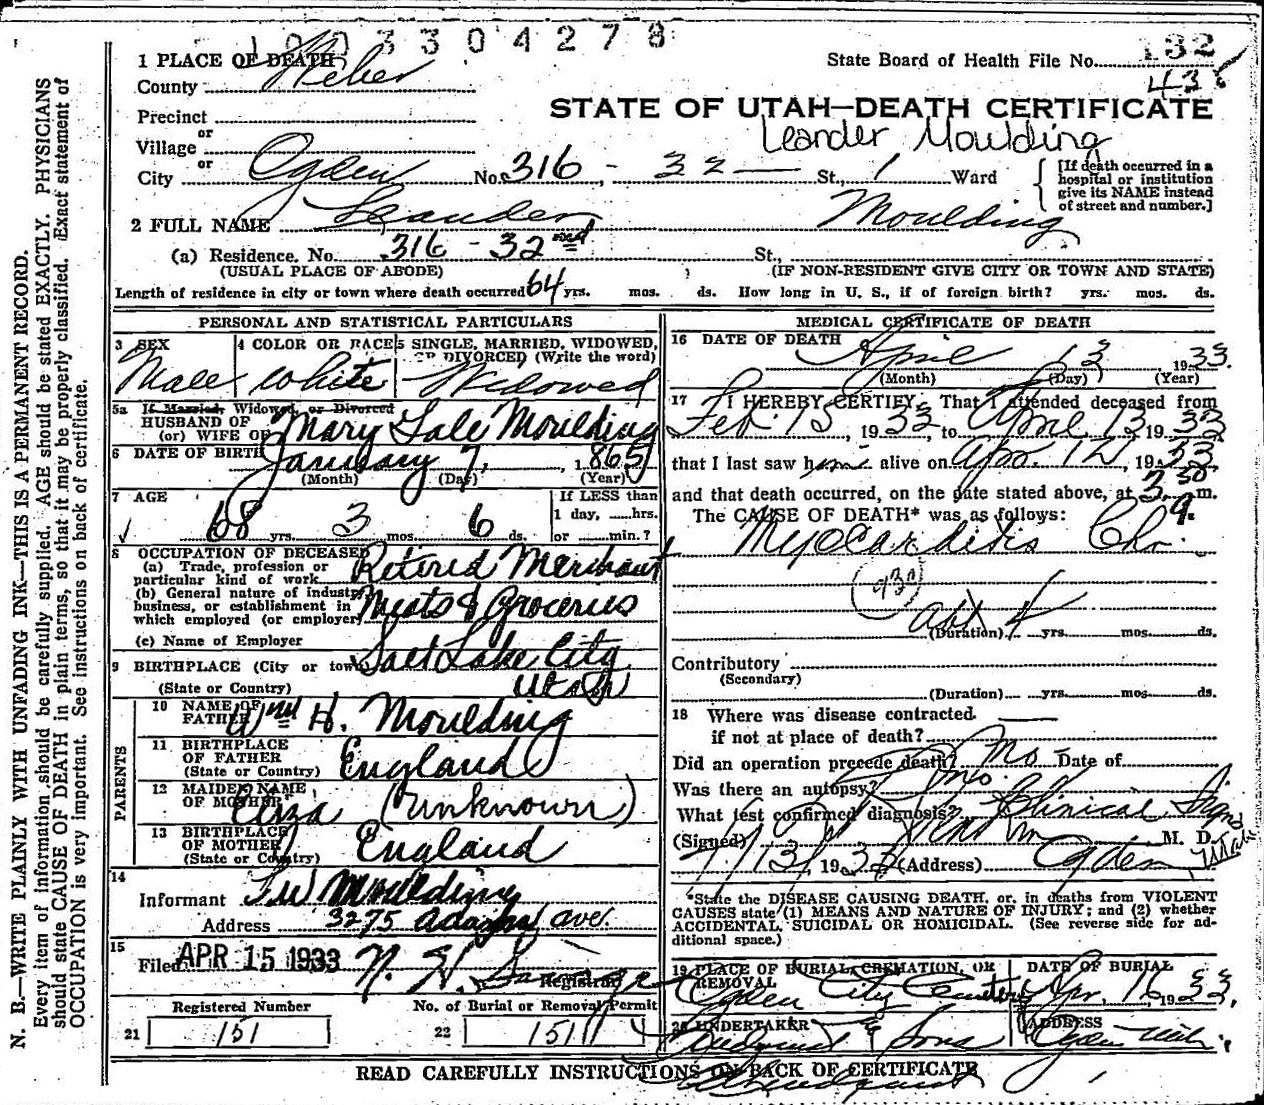 1003304278
1 PLACE OF DEATH
County Weber
State Board of Health File No. 132
435
Precinct
or
Village
or
STATE OF UTAH—DEATH CERTIFICATE
Leander Moulding
City Ogden No. 316 - 32 — St., 1 Ward
[If death occurred in a hospital or institution give its NAME instead of street and number.]
2 FULL NAME Leander Moulding
(a) Residence. No. 316 - 32nd St.,
(USUAL PLACE OF ABODE) (IF NON-RESIDENT GIVE CITY OR TOWN AND STATE)
Length of residence in city or town where death occurred 64 yrs. mos. ds. How long in U. S., if of foreign birth? yrs. mos. ds.
PERSONAL AND STATISTICAL PARTICULARS
3 SEX 4 COLOR OR RACE 5 SINGLE, MARRIED, WIDOWED,
OR DIVORCED (Write the word)
Male White Widowed
5a If Married, Widowed, or Divorced
HUSBAND OF
(or) WIFE OF Mary Gale Moulding
6 DATE OF BIRTH January 7, 1865
(Month) (Day) (Year)
7 AGE If LESS than
1 day, ......hrs.
68 yrs. 3 mos. 6 ds. or ......min.?
8 OCCUPATION OF DECEASED
(a) Trade, profession or
particular kind of work Retired Merchant
(b) General nature of industry,
business, or establishment in
which employed (or employer) Meats & Groceries
(c) Name of Employer
9 BIRTHPLACE (City or town) Salt Lake City
(State or Country) Utah
PARENTS
10 NAME OF
FATHER Wm H. Moulding
11 BIRTHPLACE
OF FATHER
(State or Country) England
12 MAIDEN NAME
OF MOTHER Eliza (Unknown)
13 BIRTHPLACE
OF MOTHER
(State or Country) England
14
Informant Moulding
Address 3275 Adams ave.
15
Filed APR 15 1933 Registrar
Registered Number No. of Burial or Removal Permit
21 151 22 151
MEDICAL CERTIFICATE OF DEATH
16 DATE OF DEATH
April 13 1933.
(Month) (Day) (Year)
17 I HEREBY CERTIFY, That I attended deceased from
Feb. 15, 1933, to April 13 1933
that I last saw him alive on Apr. 12, 1933,
and that death occurred, on the date stated above, at 3:30 a. m.
The CAUSE OF DEATH* was as follows:
Myocarditis Chr.
930
4
(Duration) yrs. mos. ds.
Contributory
(Secondary)
(Duration) yrs. mos. ds.
18 Where was disease contracted
if not at place of death?
Did an operation precede death? No Date of
Was there an autopsy? no.
What test confirmed diagnosis? Clinical Signs
(Signed) M. D.
4/13, 1933 (Address) Ogden Utah
*State the DISEASE CAUSING DEATH, or, in deaths from VIOLENT
CAUSES state (1) MEANS AND NATURE OF INJURY; and (2) whether
ACCIDENTAL, SUICIDAL OR HOMICIDAL. (See reverse side for ad-
ditional space.)
19 PLACE OF BURIAL, CREMATION, OR DATE OF BURIAL
REMOVAL
Ogden City Cemetery Apr. 16 1933.
20 UNDERTAKER ADDRESS
& Sons Ogden Utah.
READ CAREFULLY INSTRUCTIONS ON BACK OF CERTIFICATE
N. B.—WRITE PLAINLY WITH UNFADING INK—THIS IS A PERMANENT RECORD.
Every item of information should be carefully supplied. AGE should be stated EXACTLY. PHYSICIANS
should state CAUSE OF DEATH in plain terms, so that it may be properly classified. Exact statement of
OCCUPATION is very important. See instructions on back of certificate.